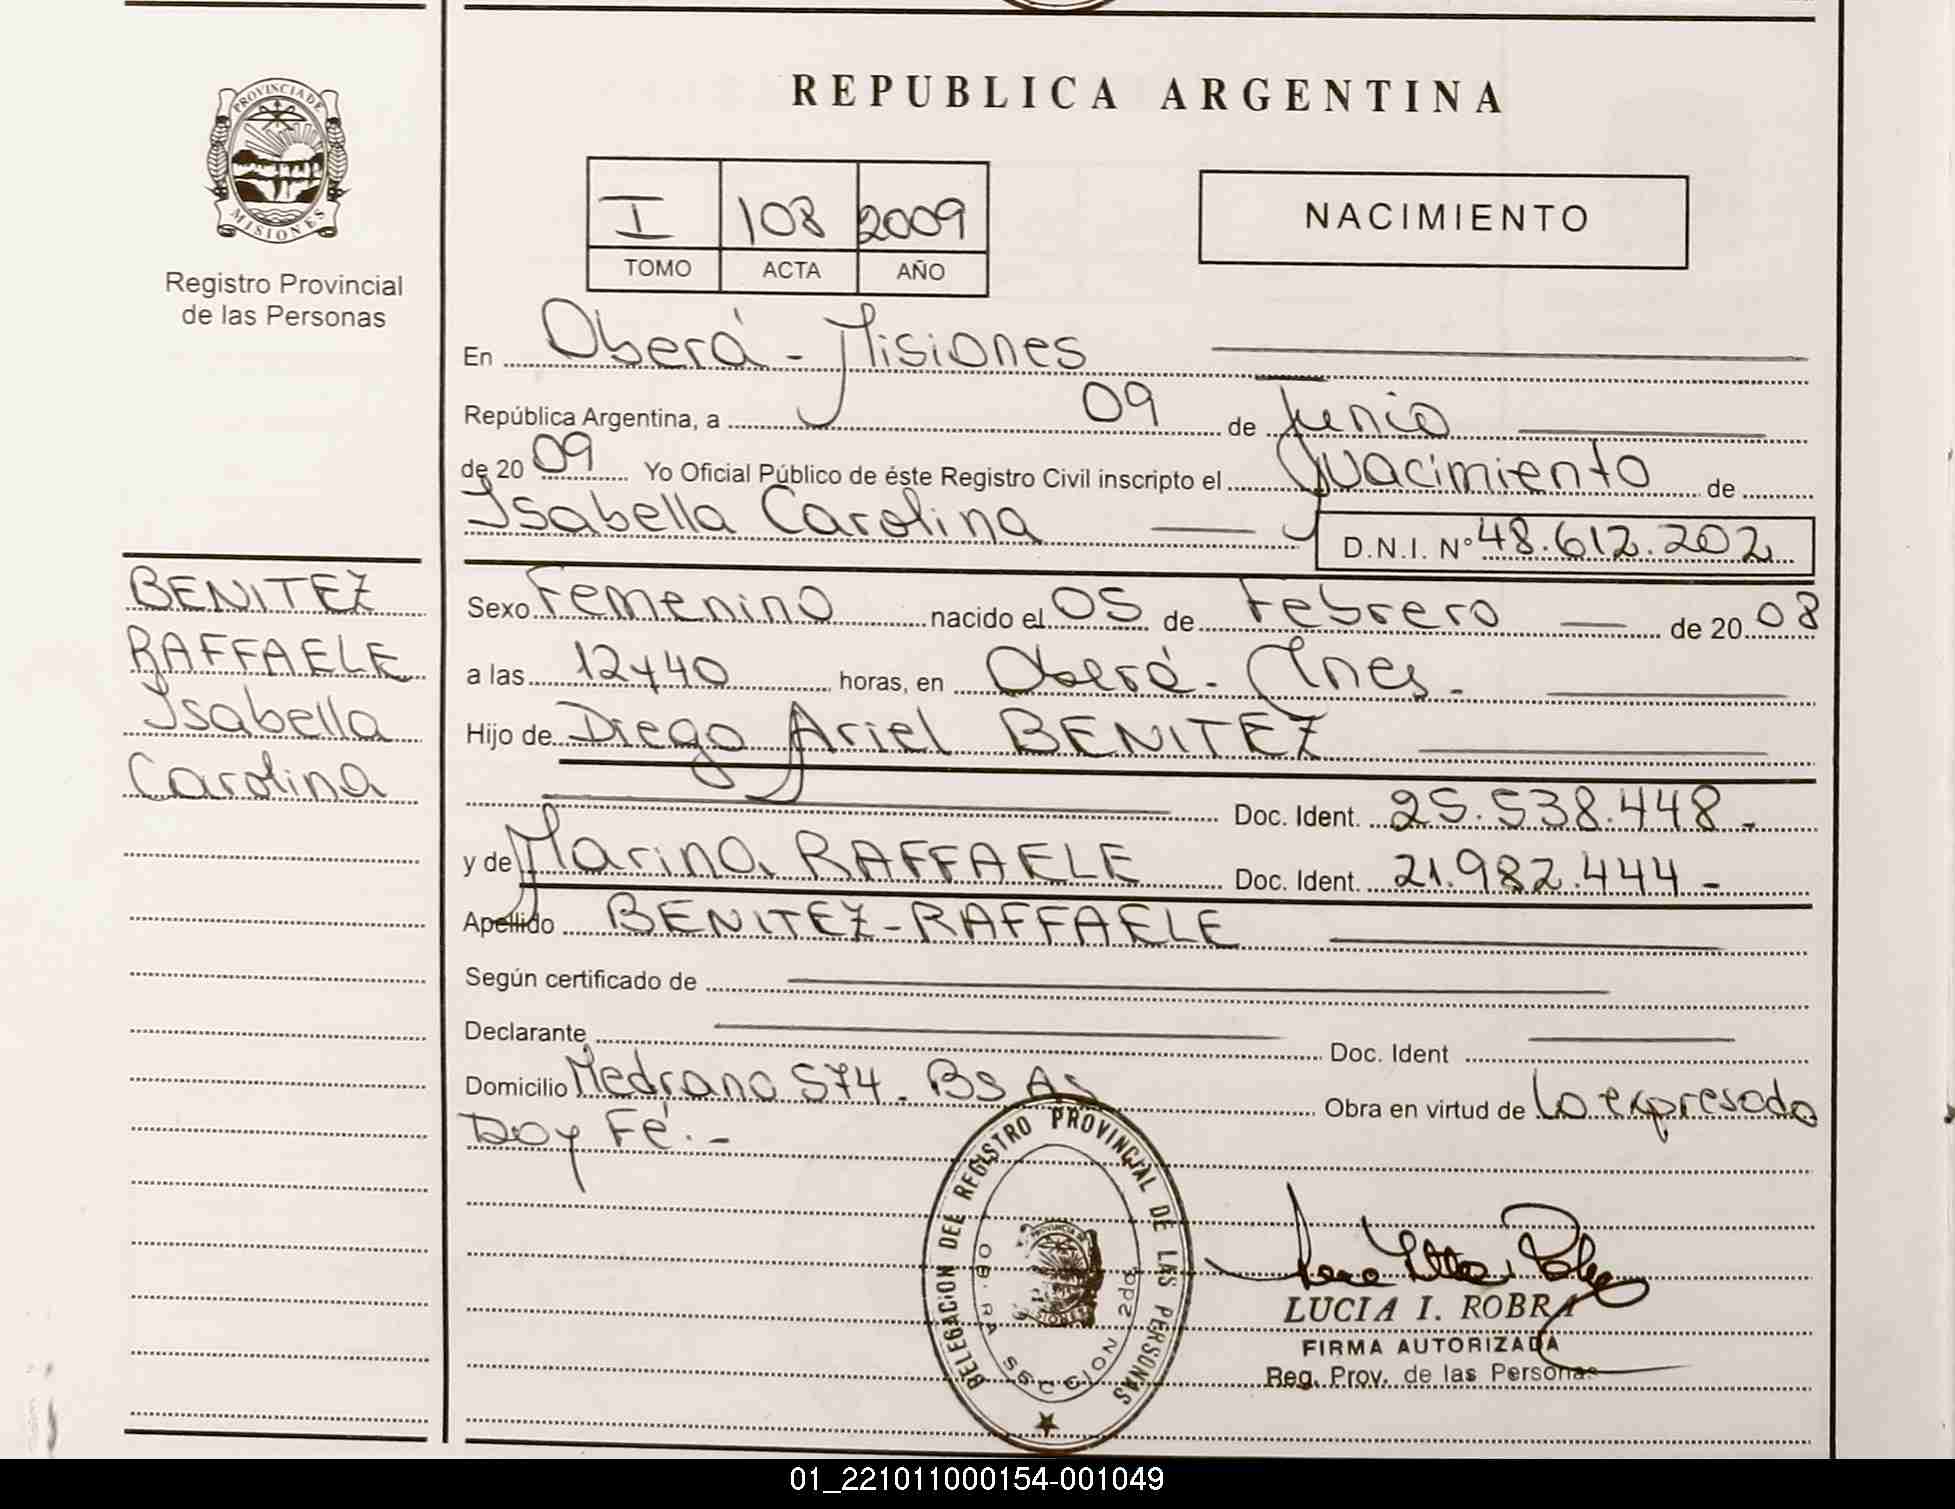 REPUBLICA ARGENTINA
PROVINCIA DE
MISIONES
Registro Provincial
de las Personas
I 108 2009
TOMO ACTA AÑO
NACIMIENTO
En Oberá - Misiones
República Argentina, a 09 de Junio
de 20 09 Yo Oficial Público de éste Registro Civil inscripto el Nacimiento de
Isabella Carolina D.N.I. Nº 48.612.202
BENITEZ
RAFFAELE
Isabella
Carolina
Sexo Femenino nacido el 05 de Febrero de 20 08
a las 12y40 horas, en Oberá - Mnes -
Hijo de Diego Ariel BENITEZ
Doc. Ident. 25.538.448 -
y de Marina RAFFAELE Doc. Ident. 21.982.444 -
Apellido BENITEZ - RAFFAELE
Según certificado de
Declarante Doc. Ident
Domicilio Medrano 574 - Bs As Obra en virtud de Lo expresado
Doy Fé. -
DELEGACION DEL REGISTRO PROVINCIAL DE LAS PERSONAS
SECCION 2da
LUCIA I. ROBRA
FIRMA AUTORIZADA
Reg. Prov. de las Personas
01_221011000154-001049